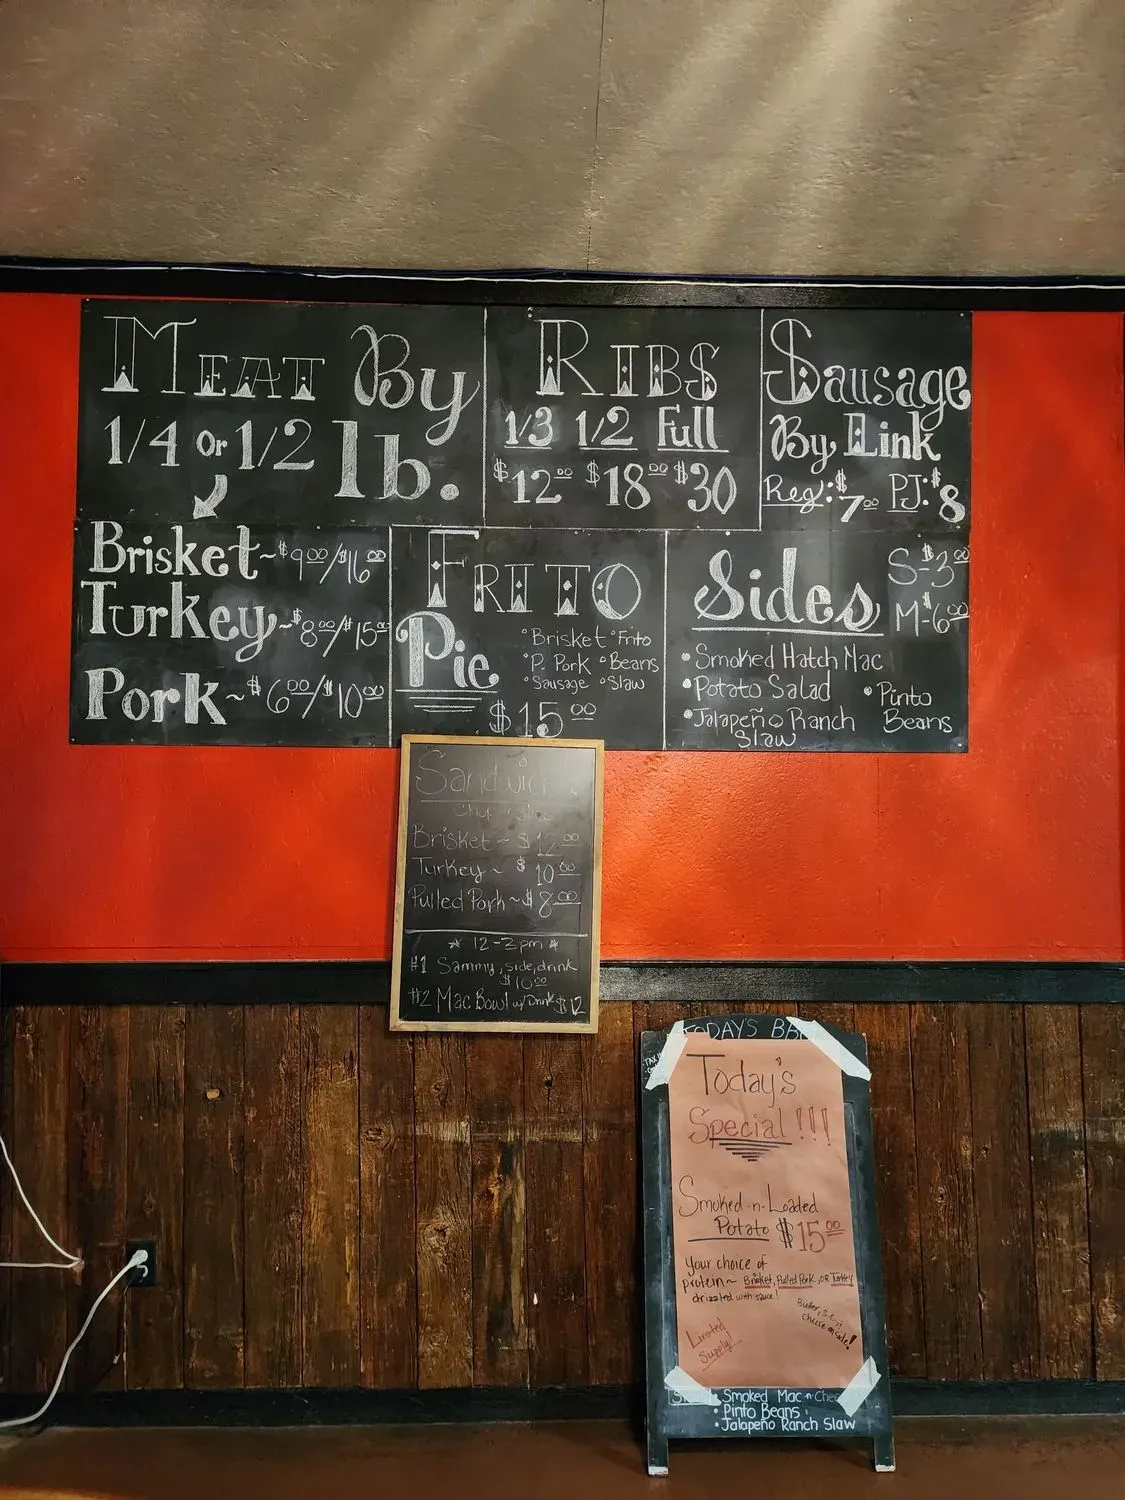 MEAT By
1/4 or 1/2 lb.
Brisket~$9.00/$16.00
Turkey~$8.00/$15.00
Pork~$6.00/$10.00
RIBS
1/3 1/2 Full
$12.00 $18.00 $30
Sausage
By Link
Reg:$7.00 PJ:$8
FRITO
Pie
•Brisket •Frito
•P. Pork •Beans
•Sausage •Slaw
$15.00
Sides
S-$3.00
M-$6.00
•Smoked Hatch Mac
•Potato Salad
•Pinto Beans
•Jalapeño Ranch
Slaw
Brisket~$12.00
Turkey~$10.00
Pulled Pork~$8.00
#1 Sammy, side, drink
$10.00
#2 Mac Bowl w/Drink $12
TODAY'S
Today's
Special!!!
Smoked-n-Loaded
Potato $15.00
Your choice of
protein~ Brisket, Pulled Pork, OR Turkey
drizzled with sauce!
Limited
Supply!
•Smoked Mac-n-
•Pinto Beans
•Jalapeño Ranch Slaw